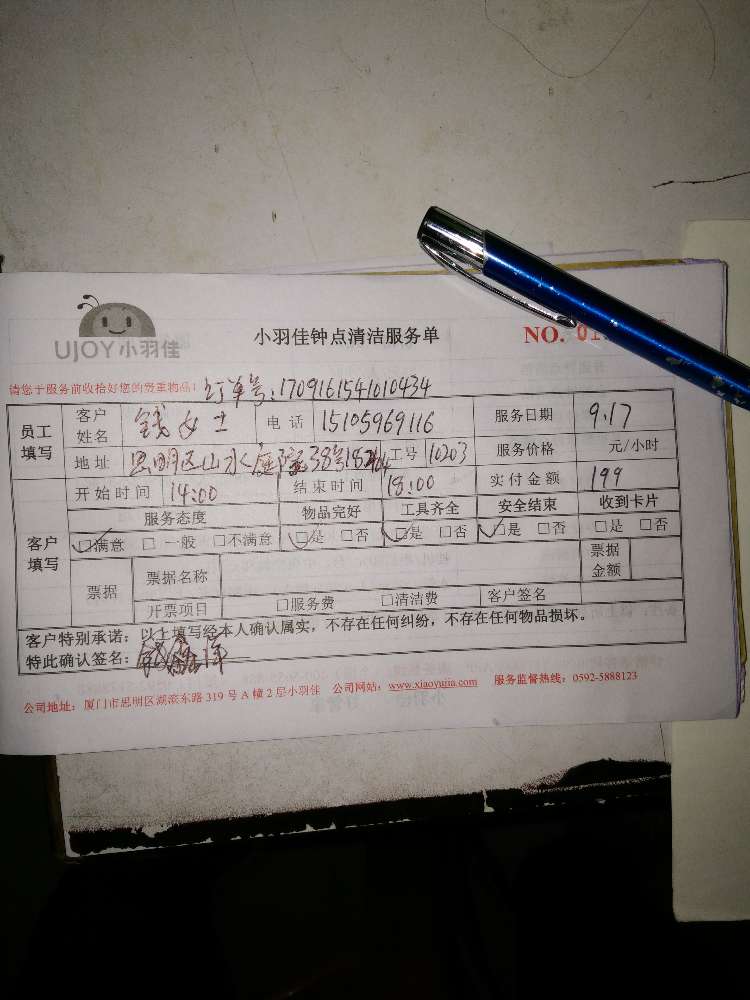 UJOY小羽佳
小羽佳钟点清洁服务单 NO. 01
请您于服务前收拾好您的贵重物品! 订单号:1709161541010434
员工填写 客户姓名 钱女士 电话 15105969116 服务日期 9.17
地址 思明区山水庭院38号 工号 10203 服务价格 元/小时
客户填写 开始时间 14:00 结束时间 18:00 实付金额 199
服务态度 物品完好 工具齐全 安全结束 收到卡片
☑满意 □一般 □不满意 ☑是 □否 ☑是 □否 ☑是 □否 □是 □否
票据 票据名称 票据金额
开票项目 □服务费 □清洁费 客户签名
客户特别承诺:以上填写经本人确认属实,不存在任何纠纷,不存在任何物品损坏。
特此确认签名:
公司地址:厦门市思明区湖滨东路319号A幢2层小羽佳 公司网站:www.xiaoyujia.com 服务监督热线:0592-5888123